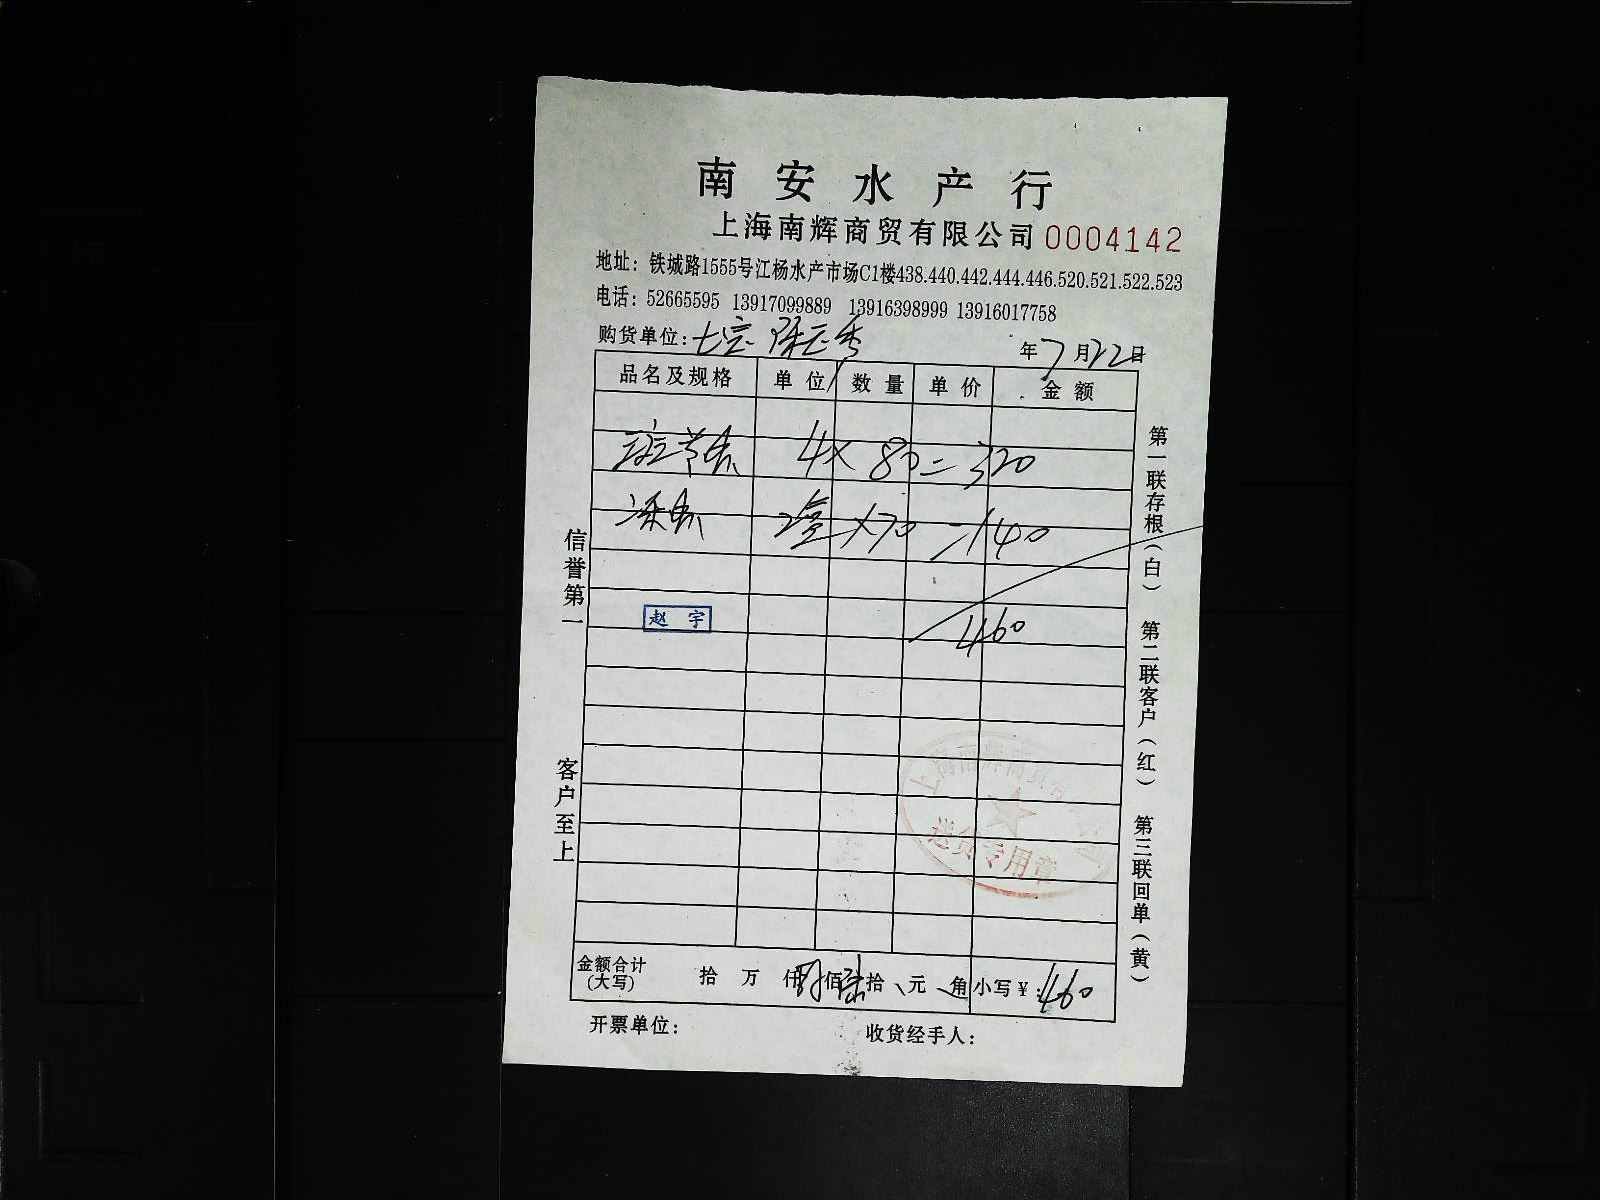 南安水产行
上海南辉商贸有限公司 0004142
地址：铁城路1555号江杨水产市场C1楼438.440.442.444.446.520.521.522.523
电话：52665595 13917099889 13916398999 13916017758
购货单位： 年7月22日
品名及规格 单位 数量 单价 金额
斑节虾 4×80=320
冻虾 2盒×70=140
赵宇 460
送货专用章
金额合计(大写) 拾 万 仟肆佰陆拾 元 角 小写￥：460
开票单位： 收货经手人：
信誉第一 客户至上
第一联存根（白） 第二联客户（红） 第三联回单（黄）